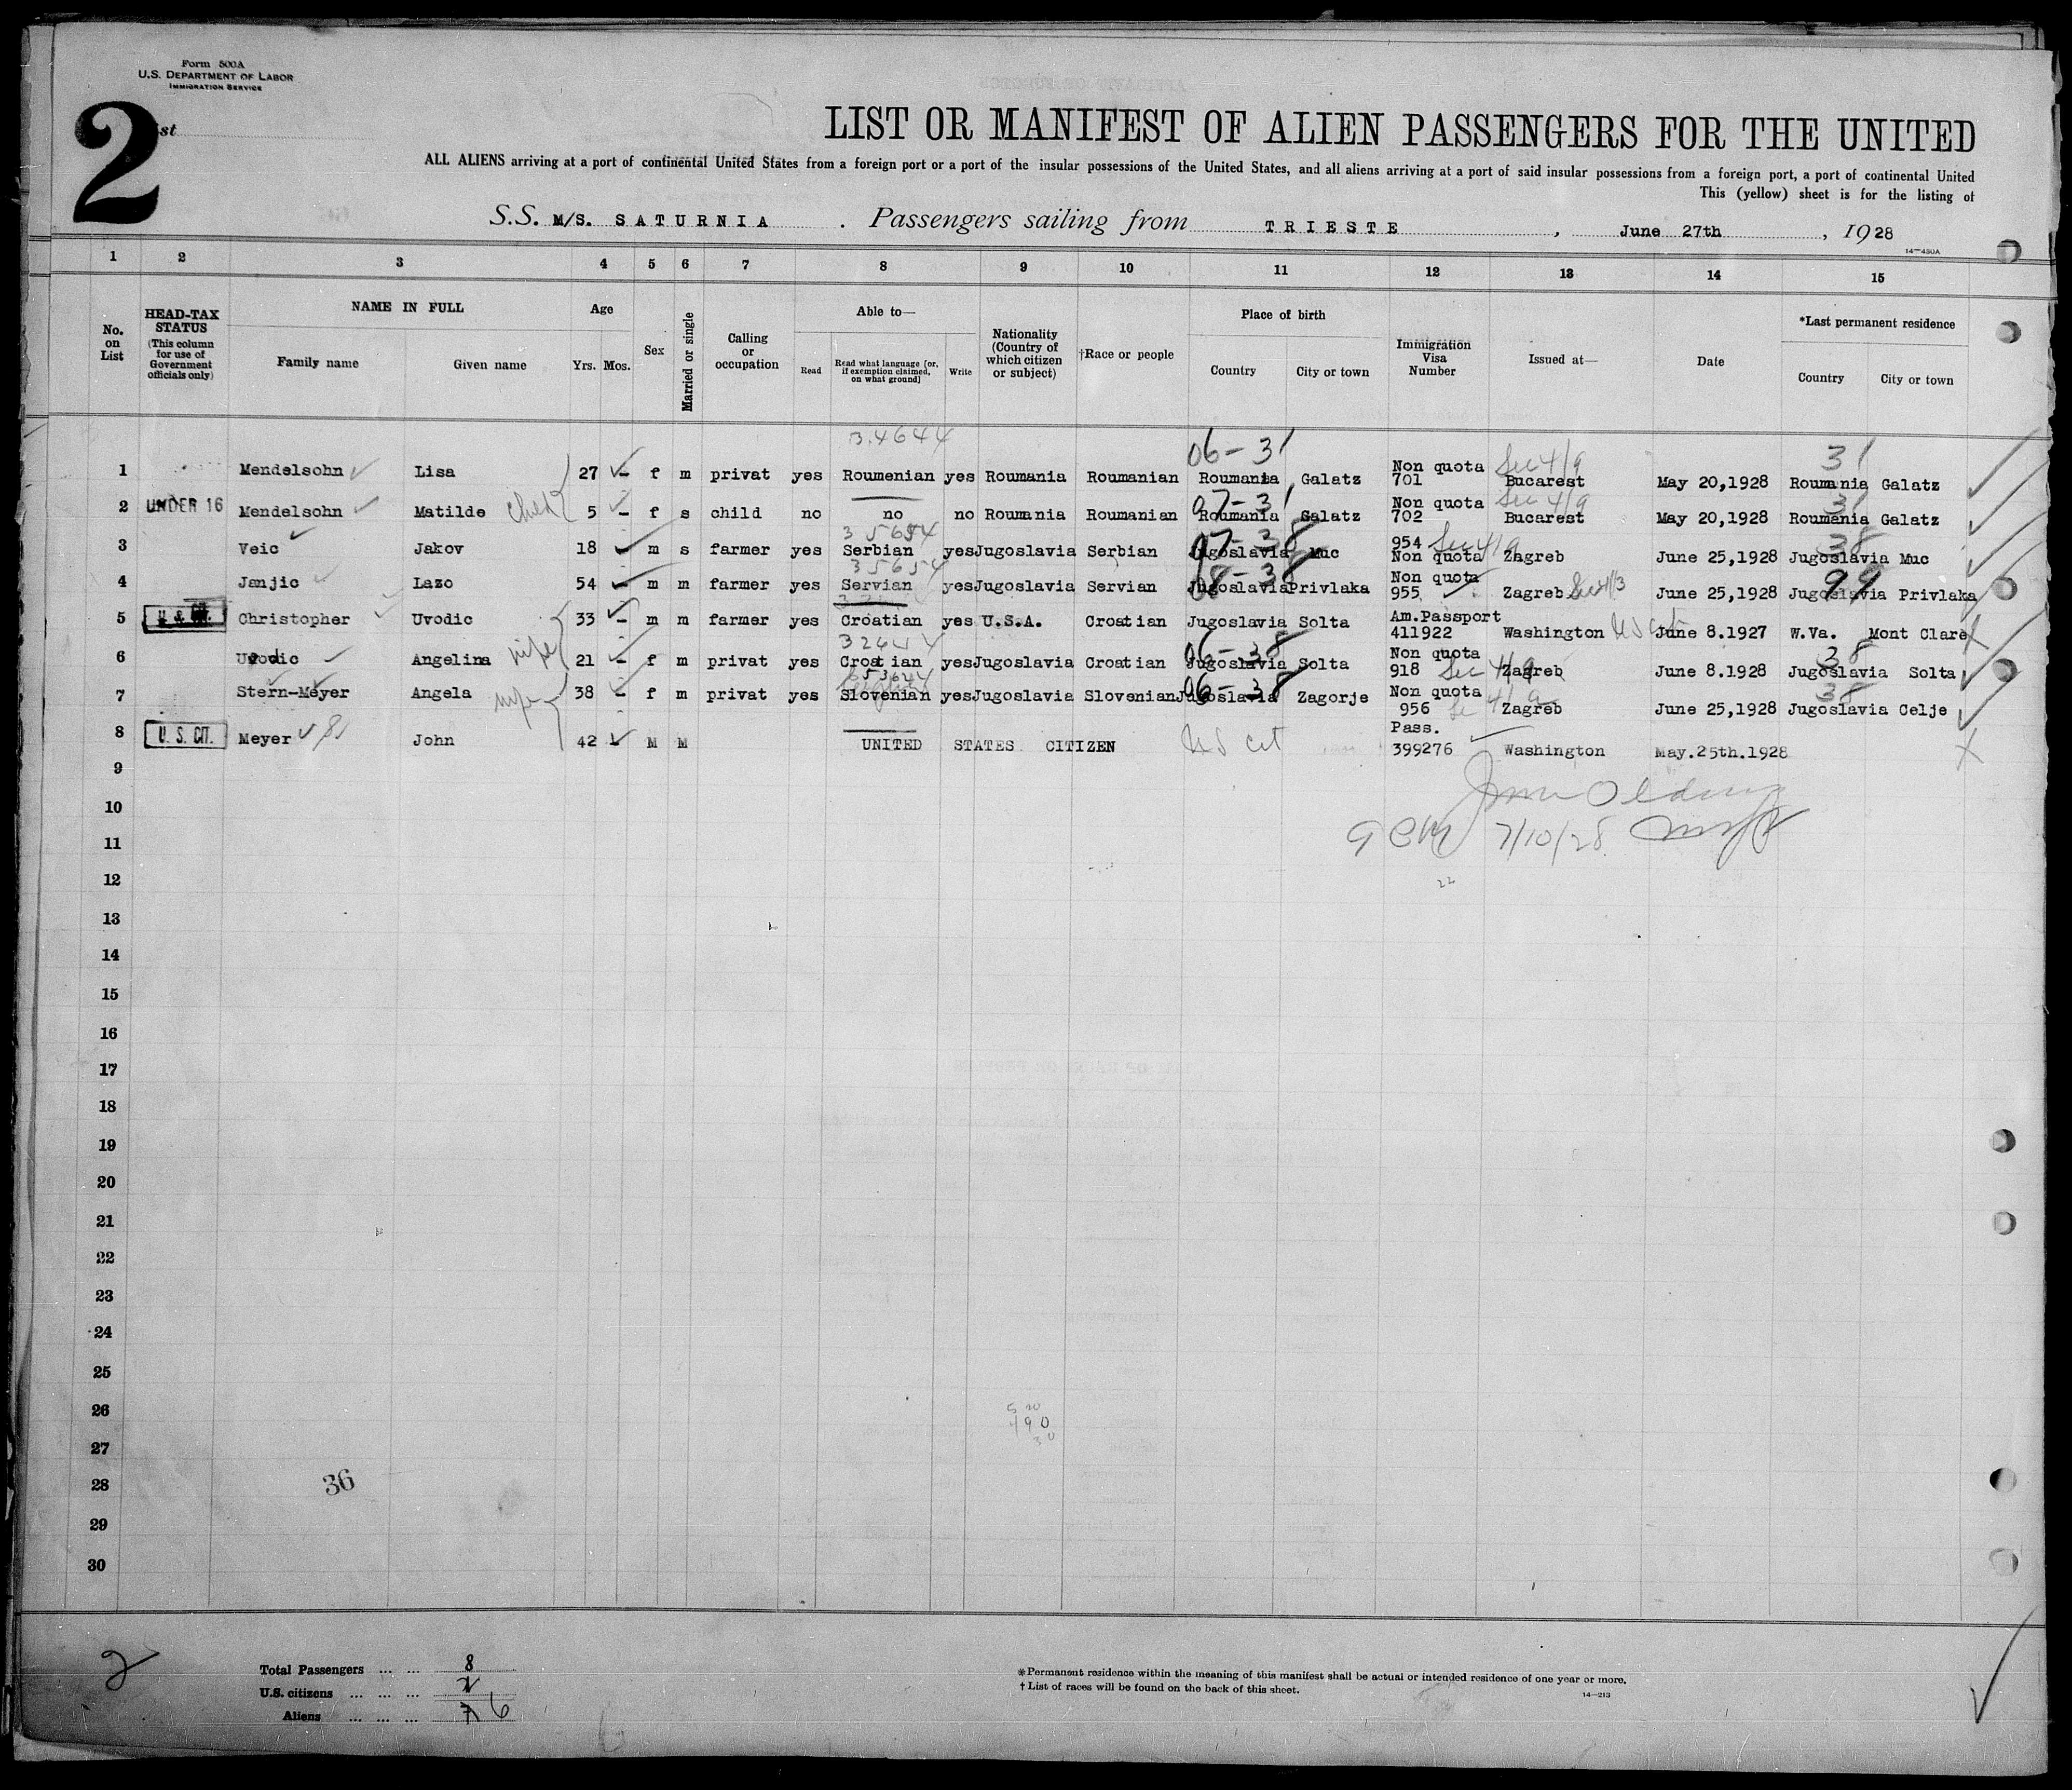 Form 500A
U.S. DEPARTMENT OF LABOR
IMMIGRATION SERVICE
2
LIST OR MANIFEST OF ALIEN PASSENGERS FOR THE UNITED
ALL ALIENS arriving at a port of continental United States from a foreign port or a port of the insular possessions of the United States, and all aliens arriving at a port of said insular possessions from a foreign port, a port of continental United
This (yellow) sheet is for the listing of
S.S. M/S. SATURNIA . Passengers sailing from TRIESTE , June 27th , 1928
14—430A
1 2 3 4 5 6 7 8 9 10 11 12 13 14 15
No. on List
HEAD-TAX STATUS (This column for use of Government officials only)
NAME IN FULL
Family name Given name
Age
Yrs. Mos.
Sex
Married or single
Calling or occupation
Able to—
Read Read what language [or, if exemption claimed, on what ground] Write
Nationality (Country of which citizen or subject)
†Race or people
Place of birth
Country City or town
Immigration Visa Number
Issued at—
Date
*Last permanent residence
Country City or town
34644 06-31 31
1 Mendelsohn Lisa 27 - f m privat yes Roumenian yes Roumania Roumanian Roumania Galatz Non quota 701 Sec 4/a Bucarest May 20,1928 Roumania Galatz
07-31 31
2 UNDER 16 Mendelsohn Matilde child 5 - f s child no no no Roumania Roumanian Roumania Galatz Non quota 702 Sec 4/a Bucarest May 20,1928 Roumania Galatz
35654 07-38 38
3 Veic Jakov 18 m s farmer yes Serbian yes Jugoslavia Serbian Jugoslavia Muc 954 Non quota Sec 4/a Zagreb June 25,1928 Jugoslavia Muc
35654 08-38 99
4 Janjic Lazo 54 - m m farmer yes Servian yes Jugoslavia Servian Jugoslavia Privlaka Non quota 955 Zagreb June 25,1928 Jugoslavia Privlaka
5 Christopher Uvodic 33 - m m farmer yes Croatian yes U.S.A. Croatian Jugoslavia Solta Am.Passport 411922 Washington US Cit June 8.1927 W.Va. Mont Clare
32644 06-38 38
6 Uvodic Angelina wife 21 - f m privat yes Croatian yes Jugoslavia Croatian Jugoslavia Solta Non quota 918 Sec 4/a Zagreb June 8.1928 Jugoslavia Solta
06-38 38
7 Stern-Meyer Angela wife 38 - f m privat yes Slovenian yes Jugoslavia Slovenian Jugoslavia Zagorje Non quota 956 Zagreb June 25,1928 Jugoslavia Celje
8 U. S. CIT. Meyer John 42 - M M UNITED STATES CITIZEN US Cit Pass. 399276 Washington May.25th.1928
9
10
11 7/10/28
12 22
13
14
15
16
17
18
19
20
21
22
23
24
25
26
27
28 36
29
30
2
Total Passengers ... ... 8
U.S. citizens ... ... ... 2
Aliens ... ... ... 7 6
*Permanent residence within the meaning of this manifest shall be actual or intended residence of one year or more.
†List of races will be found on the back of this sheet.
14—213